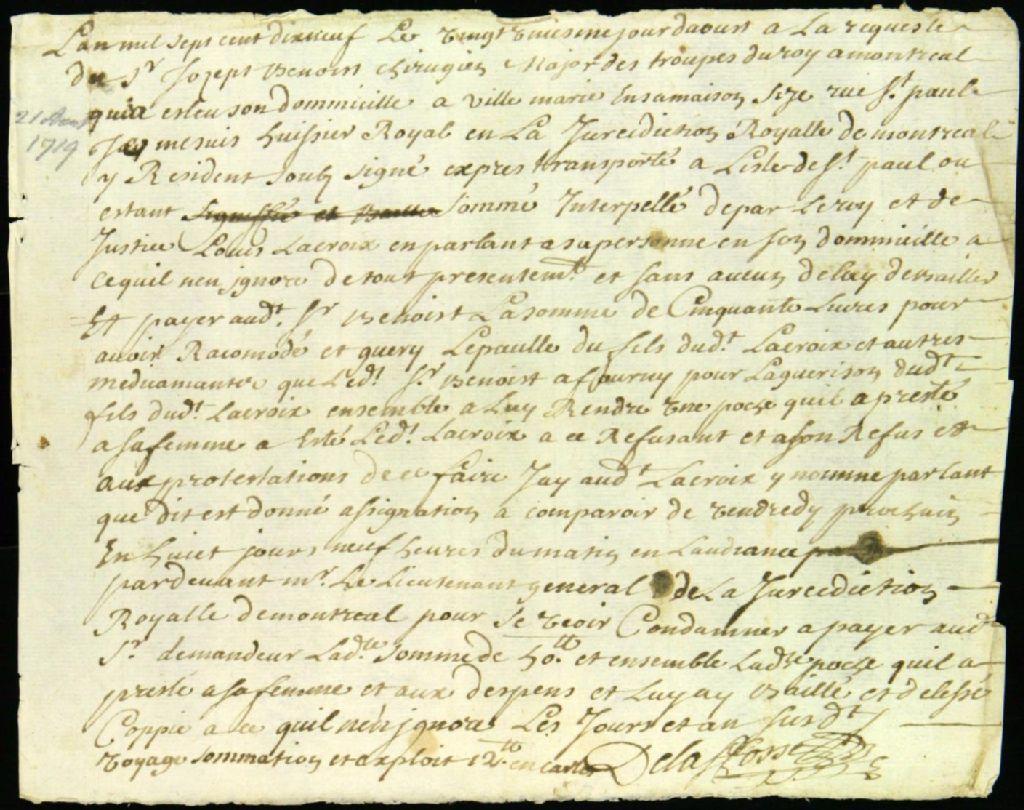 Lan mil sept cent dixneuf Le vingt unieme jour daoust a La requeste
du Sr Jozept Benoist chirugien Major des troupes du roy a montreal
quia esleu son dommicille a ville marie En sa maison size rue St paul
21 Aout
1719
Jay mesnis huissier Royal en La Jurediction Royalle de montreal
y Resident soub signé expres transporté a Lisle de St paul ou
estant signiffié et Baillé sommé Interpellé depar Le roy et de
Justice Louis Lacroix en parlant a sa personne en son dommicille a
cequil nen ignore de tout presentemt et sans aucun delay de bailler
Et payer audt Sr Benoist La somme de Cinquante Livres pour
avoir Racomodé et guery Lepaulle du fils dudt Lacroix et autres
medicamants que Ledt Sr Benoist a fourny pour La guerison dudt
fils dudt Lacroix ensemble a Luy Rendre une poche quil a presté
a sa femme a Esté Ledt Lacroix a ce Refusant et a son Refus et
aux protestations de ce faire Jay audt Lacroix y nommé parlant
que dit est donné assignation a comparoir de vendredy prochain
En huict jours neuf heures du matin en Laudiance
pardevant mr Le Lieutenant general de La Jurediction
Royalle de montreal pour se veoir Condamner a payer audt
Sr demandeur Ladte somme de 50tt et ensemble Ladte poche quil a
presté a sa femme et aux despens et Luy ay Baillé et delessé
Coppie a ce quil nen jgnore Les Jours et an susdt
voyage sommation et exploit 12tt en carte Delafosse